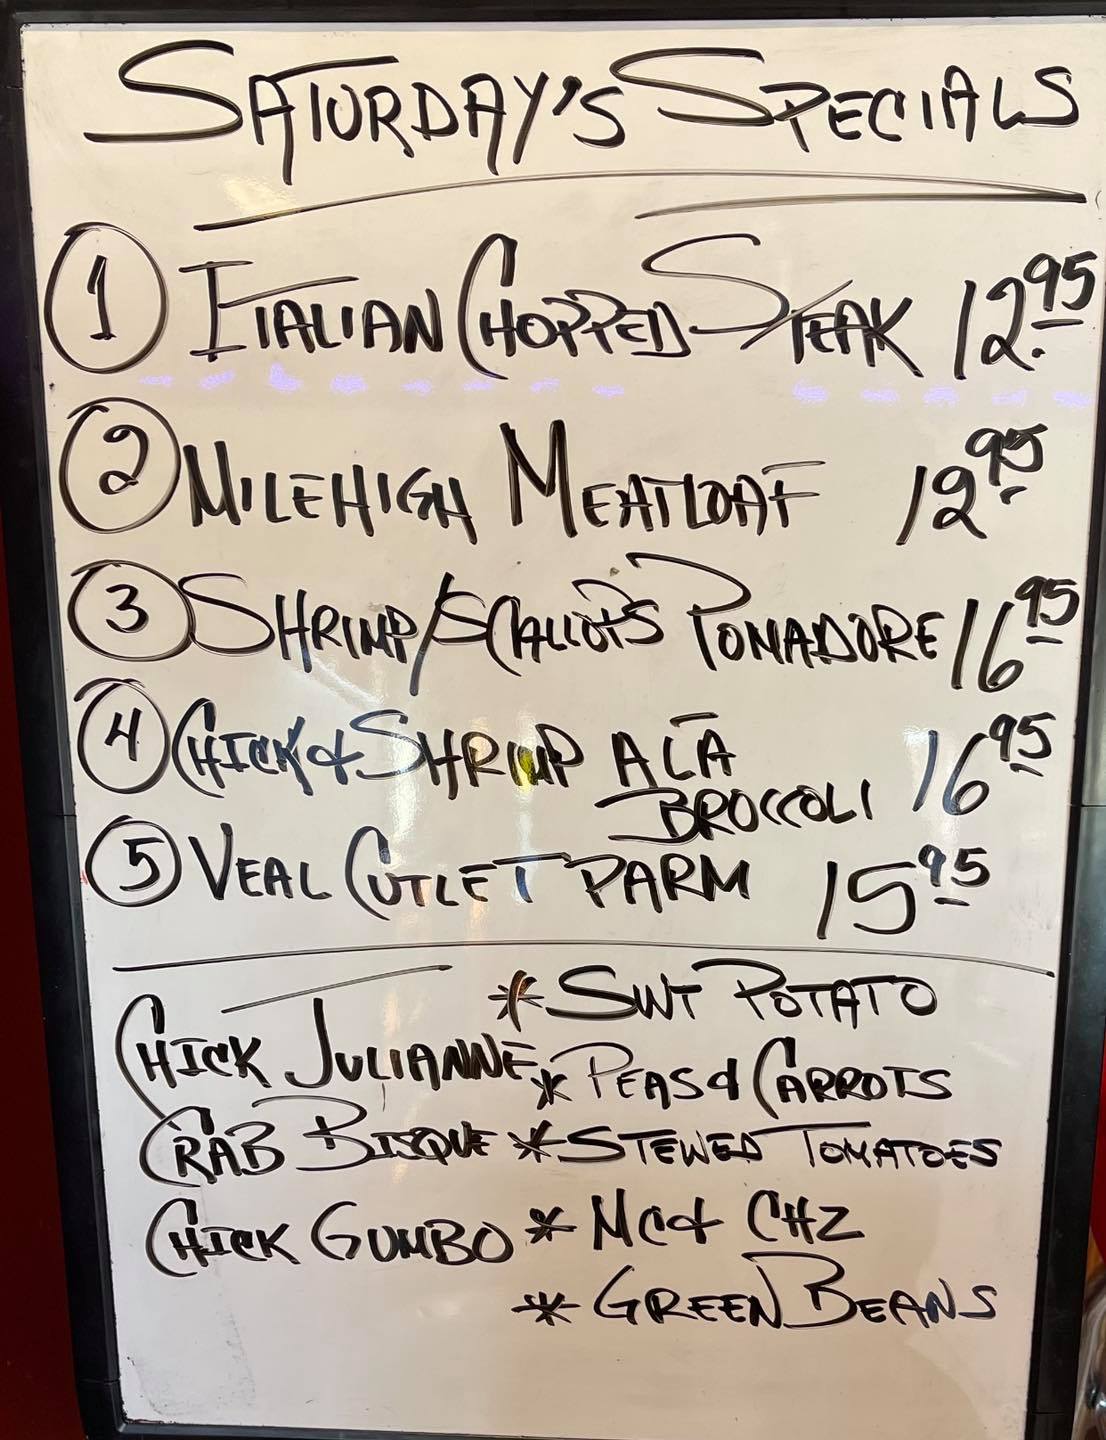 SATURDAY'S SPECIALS
1 ITALIAN CHOPPED STEAK 12.95
2 MILEHIGH MEATLOAF 12.95
3 SHRIMP/SCALLOPS POMADORE 16.95
4 CHICK & SHRIMP A LA 16.95
BROCCOLI
5 VEAL CUTLET PARM 15.95
* SWT POTATO
CHICK JULIANNE * PEAS & CARROTS
CRAB BISQUE * STEWED TOMATOES
CHICK GUMBO * MC & CHZ
* GREEN BEANS